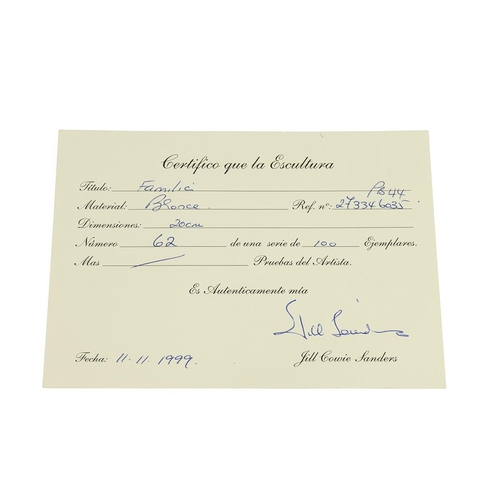 Certifico que la Escultura
Título: Familia PB44
Material: Bronce. Ref. nº: 273346035
Dimensiones: 20cm
Número 62 de una serie de 100 Ejemplares.
Mas / Pruebas del Artista.
Es Autenticamente mia
Jill Sanders
Fecha: 11-11-1999. Jill Cowie Sanders